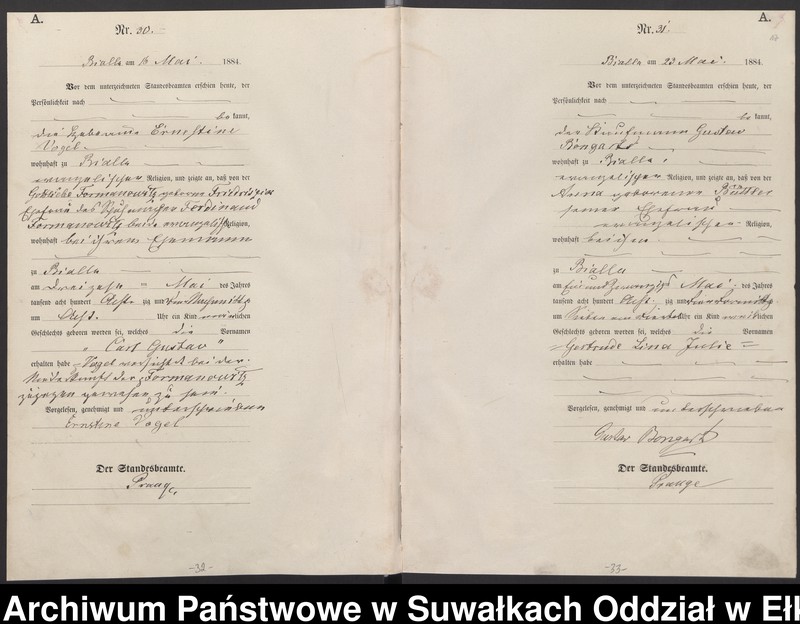 A.
Nr. 30.
Bialla am 16 Mai 1884.
Vor dem unterzeichneten Standesbeamten erschien heute, der
Persönlichkeit nach
be kannt,
die Hebamme Ernestine
Vogel
wohnhaft zu Bialla
evangelischer Religion, und zeigte an, daß von der
Gottliebe Formanowitz geborene
Ehefrau des Ferdinand
Formanowitz beide evangelisch Religion,
wohnhaft bei ihrem Ehemann
zu Bialla
am Mai des Jahres
tausend acht hundert Acht zig und vier Nachmittags
um Acht Uhr ein Kind männlichen
Geschlechts geboren worden sei, welches die Vornamen
„Carl Gustav“
erhalten habe Vogel versichert bei der
Niederkunft der Formanowitz
zugegen gewesen zu sein.
Vorgelesen, genehmigt und unterschrieben
Ernstine Vogel
Der Standesbeamte.
Prange
-32-
A.
Nr. 31.
Bialla am 23 Mai 1884.
Vor dem unterzeichneten Standesbeamten erschien heute, der
Persönlichkeit nach
be kannt,
der Kaufmann Gustav
Bongarts
wohnhaft zu Bialla
evangelischer Religion, und zeigte an, daß von der
geborenen Büttler
seiner Ehefrau
evangelischer Religion,
wohnhaft bei ihm
zu Bialla
am Ein und Zwanzigsten Mai des Jahres
tausend acht hundert Acht zig und vier Vormittags
um Sieben ein Viertel Uhr ein Kind weiblichen
Geschlechts geboren worden sei, welches die Vornamen
Gertrude Lina Julie
erhalten habe
Vorgelesen, genehmigt und unterschrieben
Gustav Bongarts
Der Standesbeamte.
Prange
-33-
Archiwum Państwowe w Suwałkach Oddział w Ełk